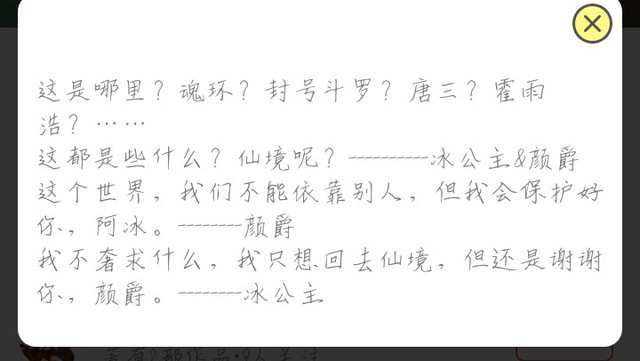 这是哪里？魂环？封号斗罗？唐三？霍雨
浩？……
这都是些什么？仙境呢？----------冰公主&颜爵
这个世界，我们不能依靠别人，但我会保护好
你，阿冰。--------颜爵
我不奢求什么，我只想回去仙境，但还是谢谢
你，颜爵。--------冰公主